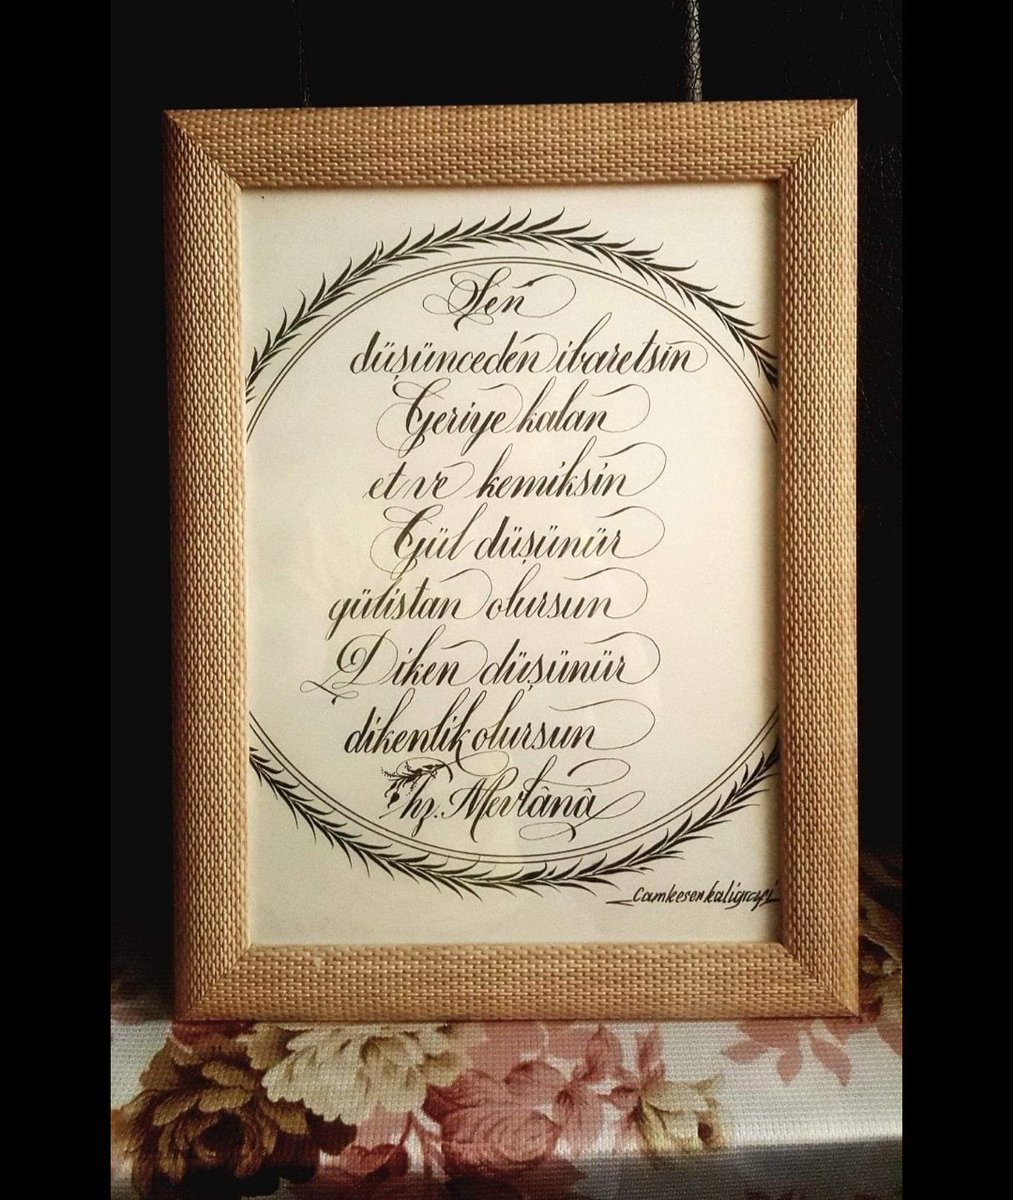 Sen
düşünceden ibaretsin
Geriye kalan
et ve kemiksin
Gül düşünür
gülistan olursun
Diken düşünür
dikenlik olursun
hz. Mevlânâ
camkesenkaligrafi